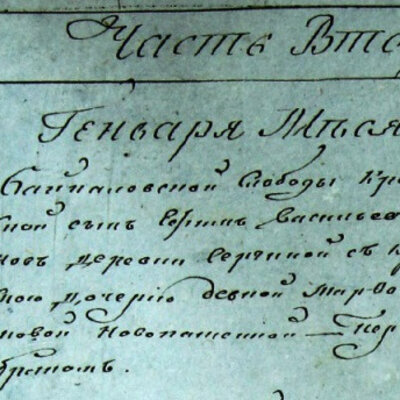 Часть Вто
Генваря Мѣся
Байкаловской Слободы Кре
ной сынъ Васильев
новъ деревни Сергиной съ к
ною дочерию девкой Марѳо
новой Новопашенной — Пер
бракомъ.